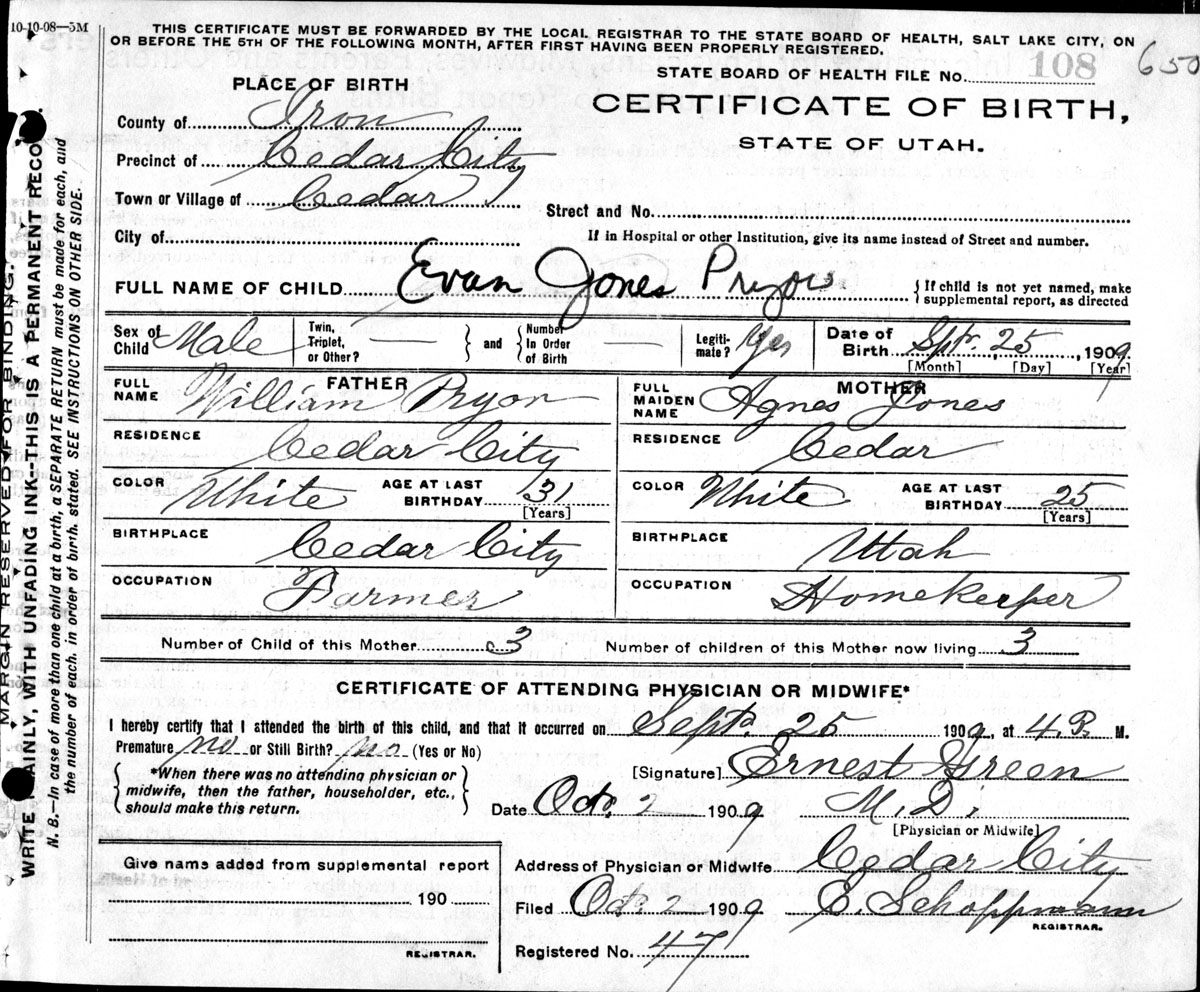 10-10-08—5M
THIS CERTIFICATE MUST BE FORWARDED BY THE LOCAL REGISTRAR TO THE STATE BOARD OF HEALTH, SALT LAKE CITY, ON
OR BEFORE THE 5TH OF THE FOLLOWING MONTH, AFTER FIRST HAVING BEEN PROPERLY REGISTERED.
650
STATE BOARD OF HEALTH FILE No. 108
PLACE OF BIRTH
CERTIFICATE OF BIRTH,
STATE OF UTAH.
County of Iron
Precinct of Cedar City
Town or Village of Cedar
Street and No.
City of
If in Hospital or other Institution, give its name instead of Street and number.
FULL NAME OF CHILD Evan Jones Pryor { If child is not yet named, make supplemental report, as directed
Sex of Child Male Twin, Triplet, or Other? — } and { Number In Order of Birth — Legiti-mate? Yes Date of Birth Sept. 25, 1909
[Month] [Day] [Year]
FATHER
FULL NAME William Pryor
RESIDENCE Cedar City
COLOR White AGE AT LAST BIRTHDAY 31 [Years]
BIRTHPLACE Cedar City
OCCUPATION Farmer
MOTHER
FULL MAIDEN NAME Agnes Jones
RESIDENCE Cedar
COLOR White AGE AT LAST BIRTHDAY 25 [Years]
BIRTHPLACE Utah
OCCUPATION Homekeeper
Number of Child of this Mother 3 Number of children of this Mother now living 3
CERTIFICATE OF ATTENDING PHYSICIAN OR MIDWIFE*
I hereby certify that I attended the birth of this child, and that it occurred on Sept. 25 1909, at 4 P. M.
Premature? no or Still Birth? no (Yes or No)
{ *When there was no attending physician or
midwife, then the father, householder, etc.,
should make this return. }
[Signature] Ernest Green
Date Oct. 2 1909 M.D.
[Physician or Midwife]
Give name added from supplemental report
190
REGISTRAR.
Address of Physician or Midwife Cedar City
Filed Oct. 2 1909 E. Schoppmann
REGISTRAR.
Registered No. 47
MARGIN RESERVED FOR BINDING.
WRITE PLAINLY, WITH UNFADING INK--THIS IS A PERMANENT RECO
N. B.—In case of more than one child at a birth, a SEPARATE RETURN must be made for each, and
the number of each, in order of birth, stated. SEE INSTRUCTIONS ON OTHER SIDE.